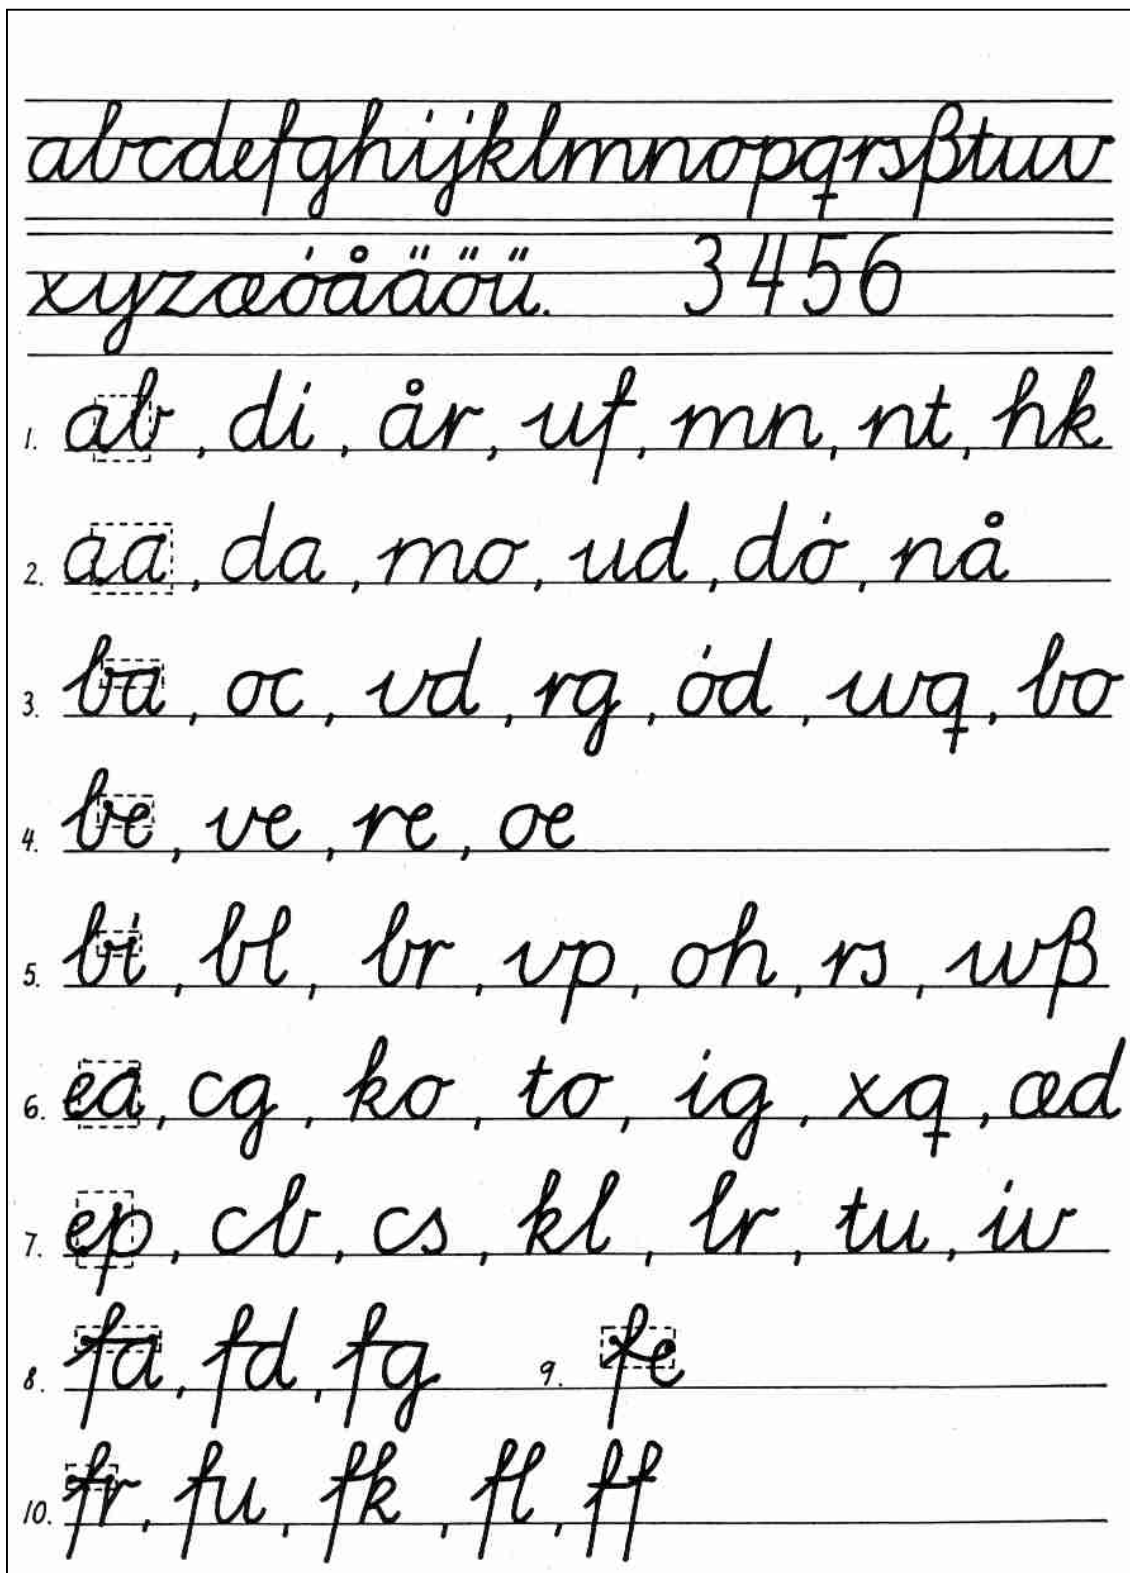 abcdefghijklmnopqrsβtuv
xyzæóåäöü. 3456
1. ab, di, år, uf, mn, nt, hk
2. aa, da, mo, ud, dó, nå
3. ba, oc, vd, rg, ód, wq, bo
4. be, ve, re, oe
5. bi, bl, br, vp, oh, rs, wβ
6. ea, cg, ko, to, ig, xq, æd
7. ep, cb, cs, kl, lr, tu, iv
8. fa, fd, fg 9. fe
10. fr, fu, fk, fl, ff